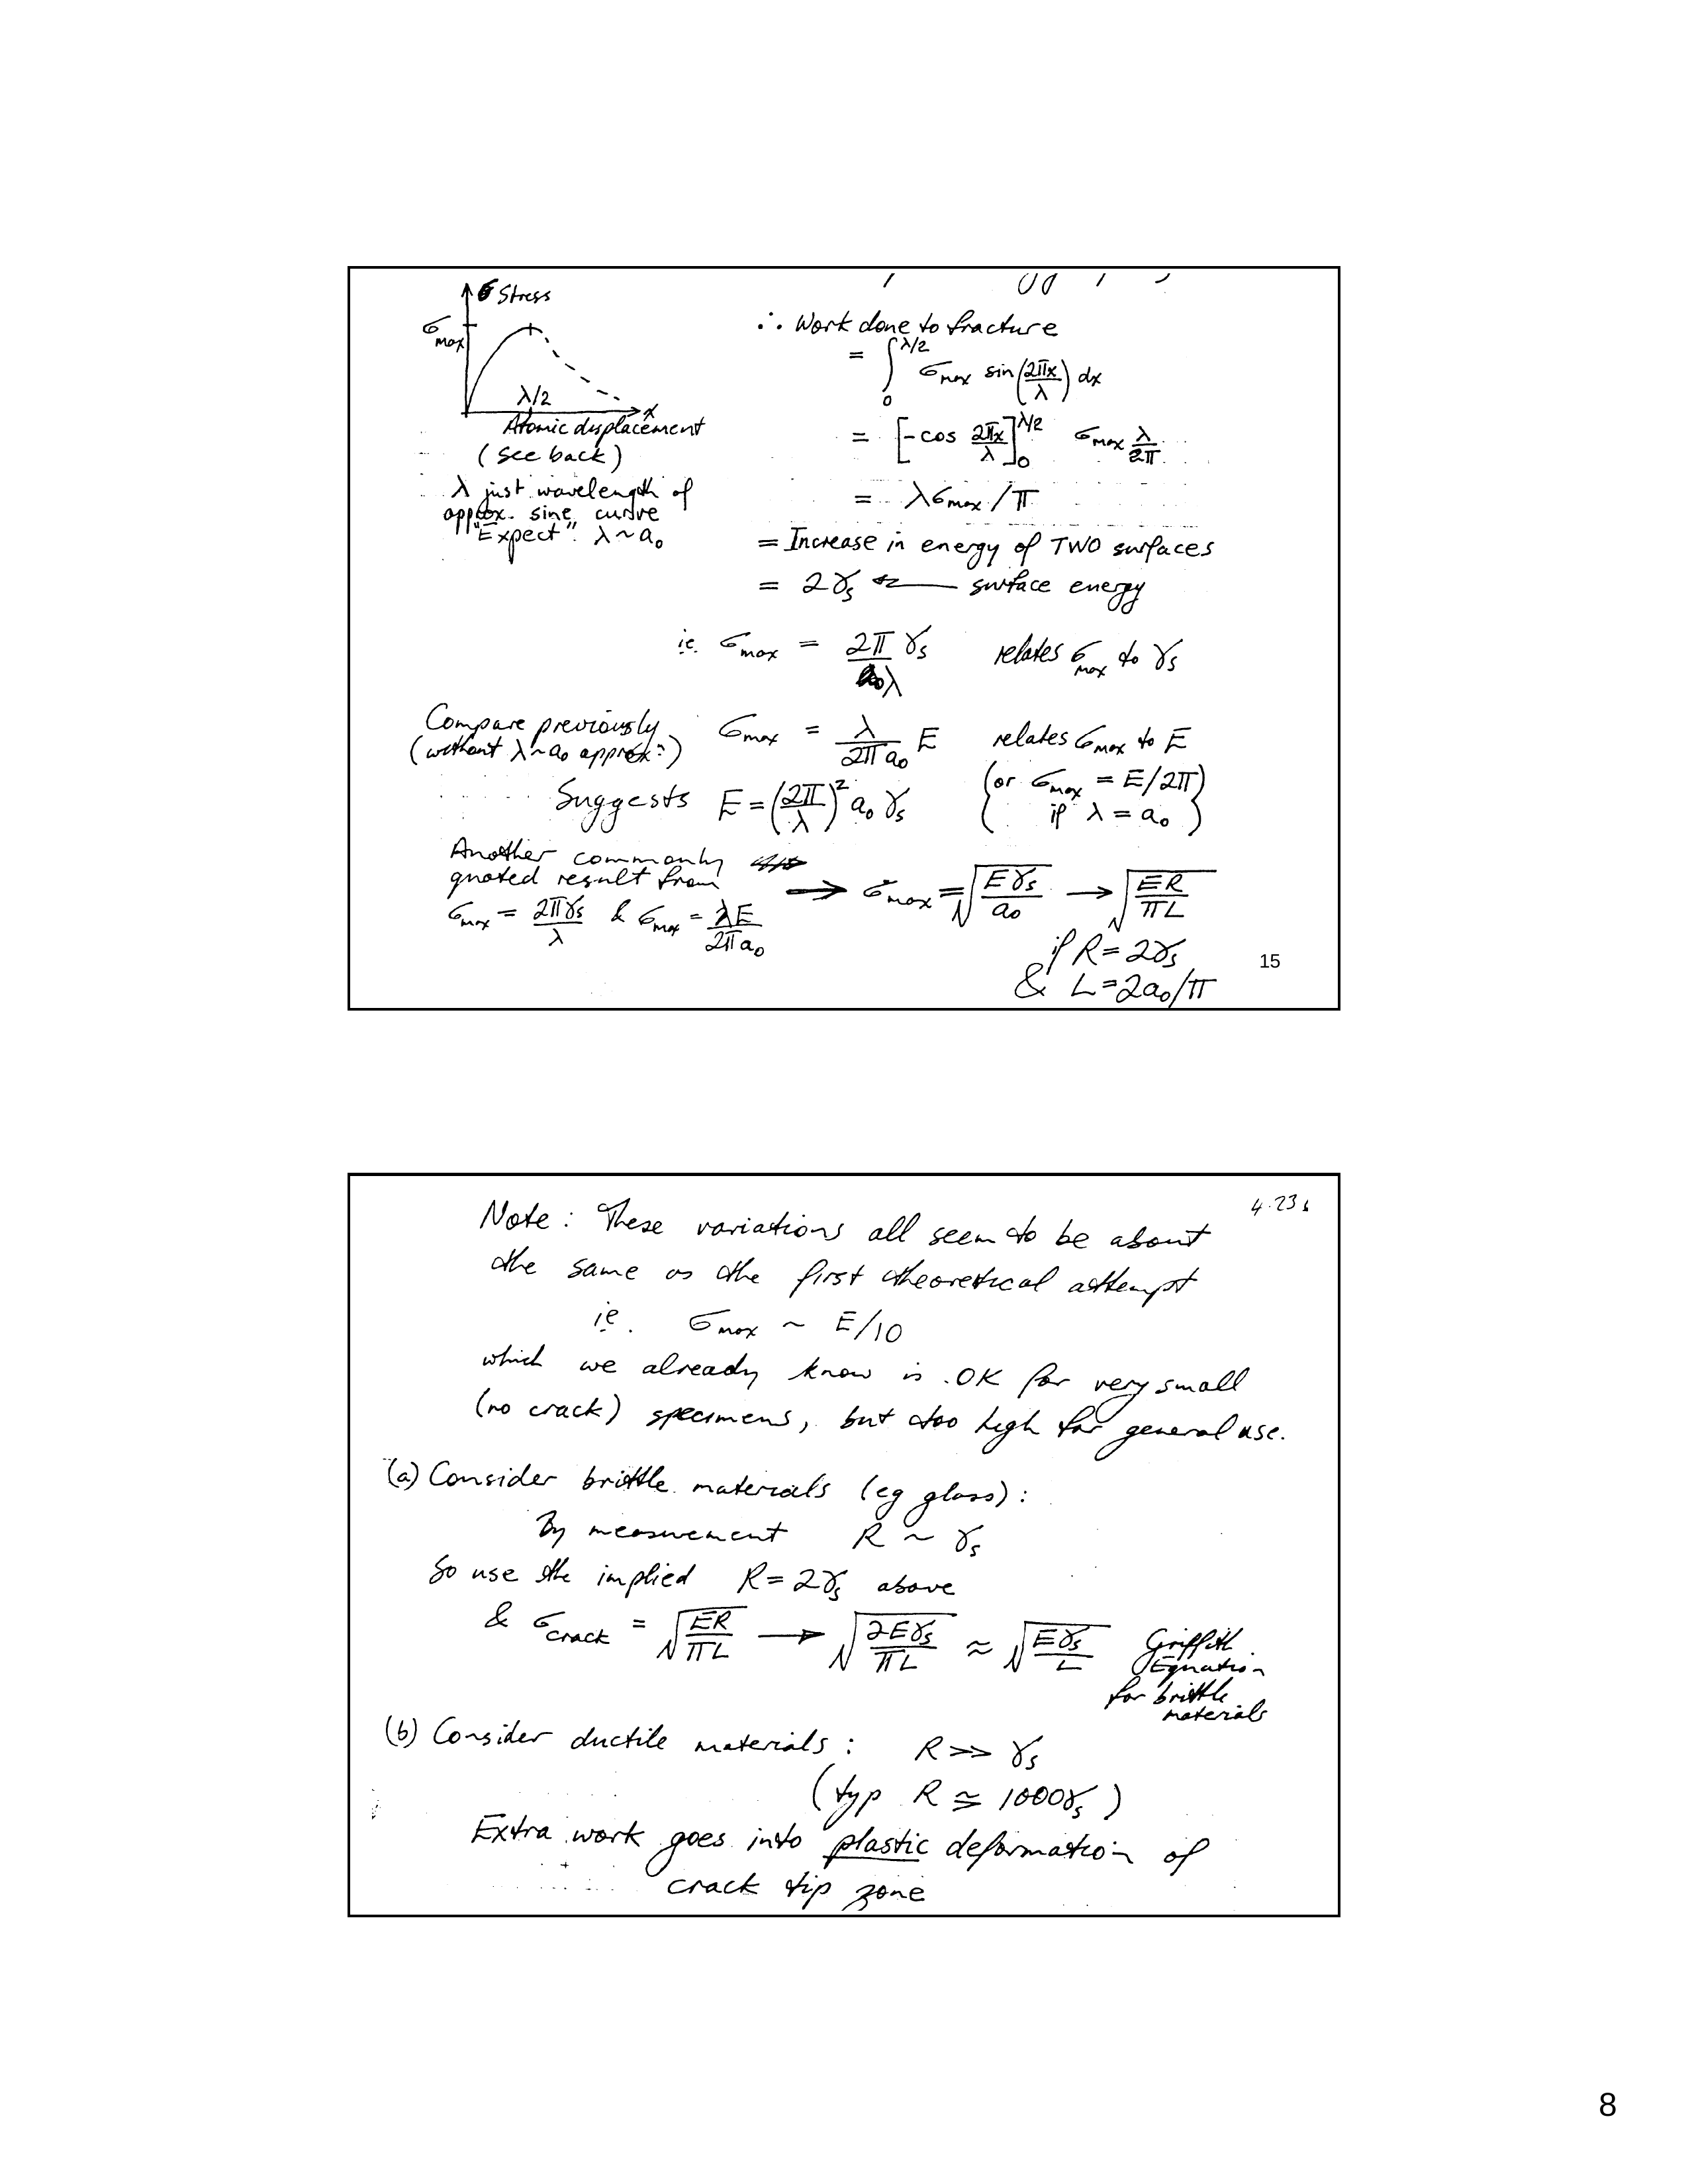 σ Stress
σmax
λ/2
x
Atomic displacement
(see back)
λ just wavelength of
approx. sine curve
"Expect" λ ~ a₀
∴ Work done to fracture
= ∫₀^(λ/2) σmax sin(2πx/λ) dx
= [-cos 2πx/λ]₀^(λ/2) σmax λ/2π
= λσmax/π
= Increase in energy of TWO surfaces
= 2γs ← surface energy
ie. σmax = 2πγs/λ relates σmax to γs
Compare previously
(without λ~a₀ approx:)
σmax = λ/(2πa₀) E relates σmax to E
(or σmax = E/2π
if λ = a₀)
Suggests E = (2π/λ)² a₀ γs
Another commonly
quoted result from
σmax = 2πγs/λ & σmax = λE/2πa₀
→ σmax = √(Eγs/a₀) → √(ER/πL)
if R = 2γs
& L = 2a₀/π
15
4.23
Note: These variations all seem to be about
the same as the first theoretical attempt
ie. σmax ~ E/10
which we already know is OK for very small
(no crack) specimens, but too high for general use.
(a) Consider brittle materials (eg glass):
By measurement R ~ γs
So use the implied R = 2γs above
& σcrack = √(ER/πL) → √(2Eγs/πL) ≈ √(Eγs/L)
Griffith
Equation
for brittle
materials
(b) Consider ductile materials: R >> γs
(typ R ≅ 1000γs)
Extra work goes into plastic deformation of
crack tip zone
8